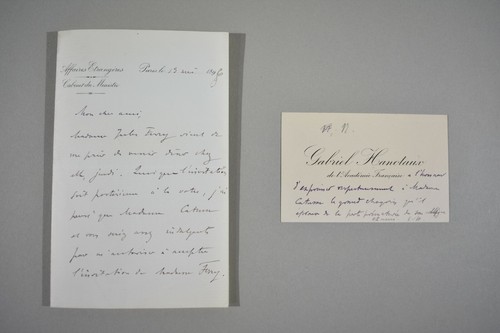 Affaires Étrangères
Cabinet du Ministre
Paris le 13 mai 189
Mon cher ami,
Madame Jules Ferry vient de
me prier de venir dîner chez
elle jeudi. Bien que l'invitation
soit postérieure à la votre, j'ai
pensé que Madame Catusse
et vous seriez assez indulgents
pour m'autoriser à accepter
l'invitation de Madame Ferry.
Gabriel Hanotaux
de l'Académie Française a l'honneur
d'exprimer respectueusement à Madame
Catusse le grand chagrin qu'il
éprouve de la perte